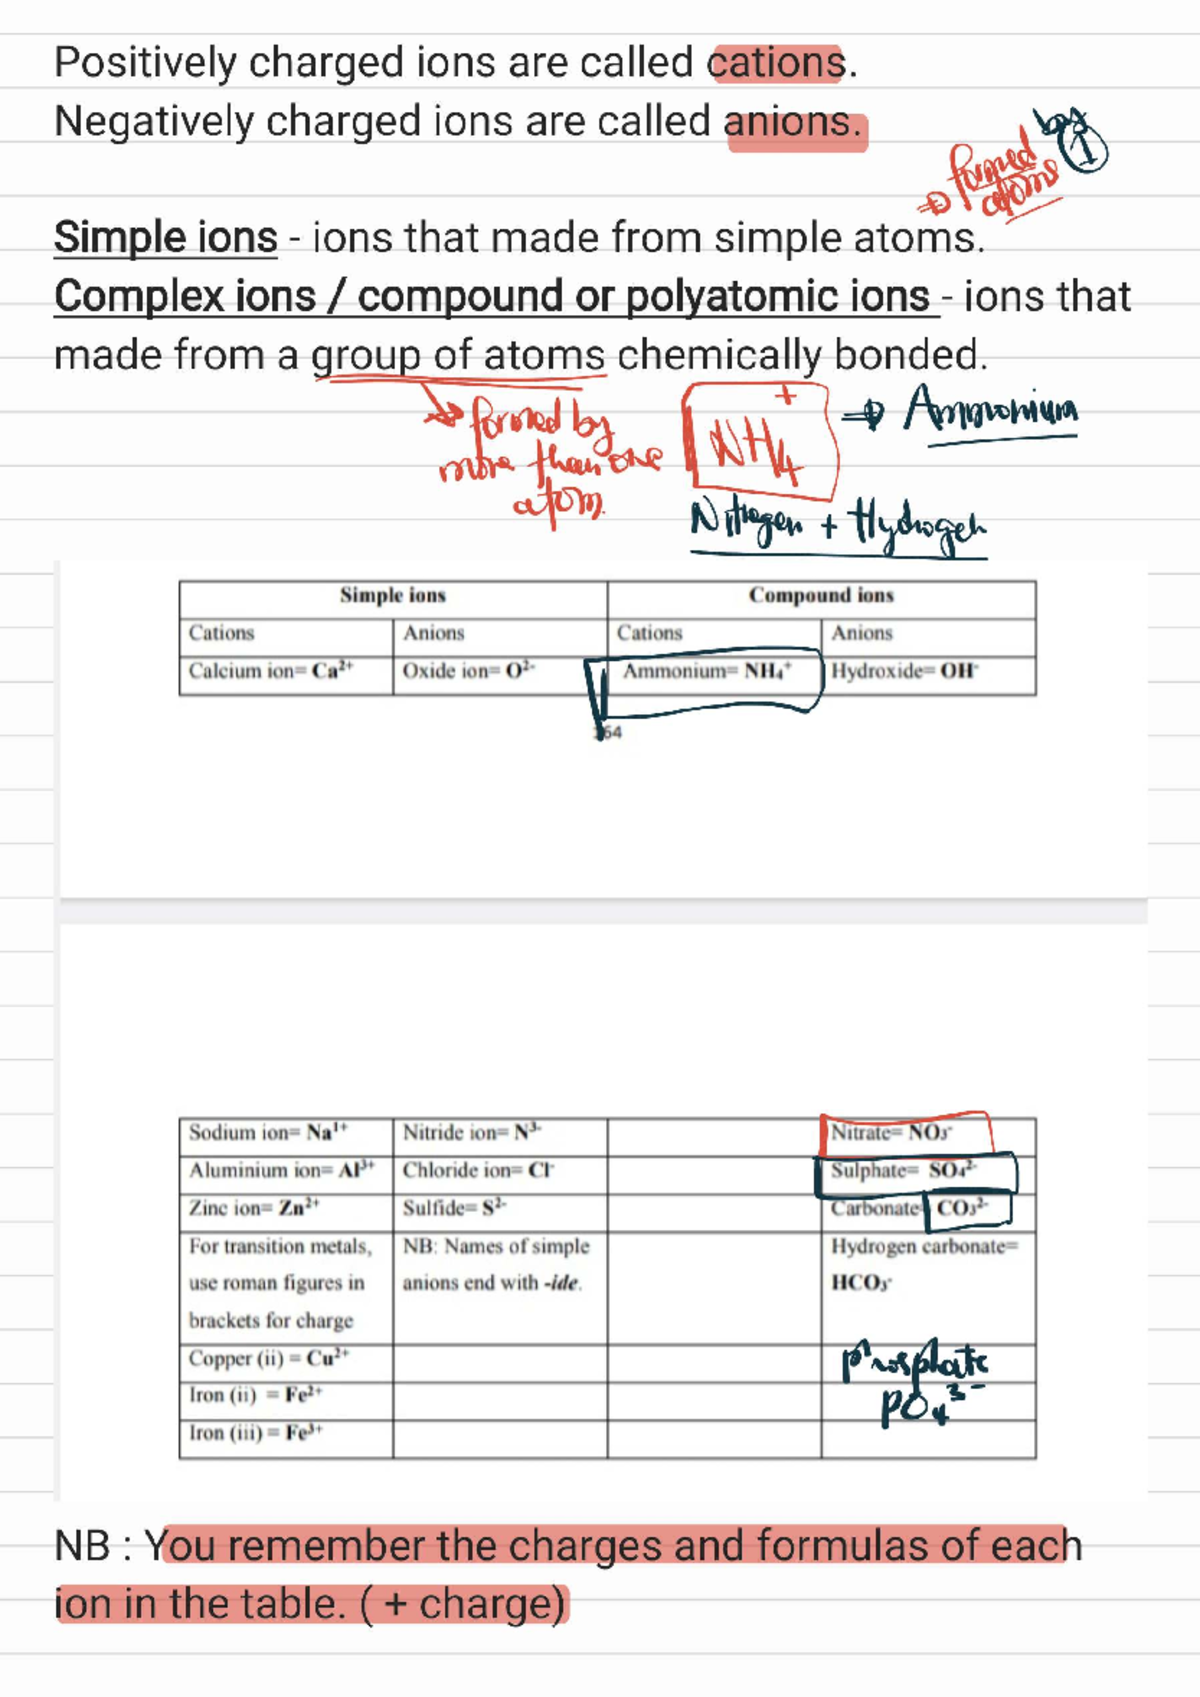 Positively charged ions are called cations.
Negatively charged ions are called anions.
⇒ formed by ①
atoms
Simple ions - ions that made from simple atoms.
Complex ions / compound or polyatomic ions - ions that
made from a group of atoms chemically bonded.
formed by
more than one
atom.
NH₄⁺
⇒ Ammonium
Nitrogen + Hydrogen
Simple ions Compound ions
Cations Anions Cations Anions
Calcium ion= Ca²⁺ Oxide ion= O²⁻ Ammonium= NH₄⁺ Hydroxide= OH⁻
64
Sodium ion= Na¹⁺ Nitride ion= N³⁻ Nitrate= NO₃⁻
Aluminium ion= Al³⁺ Chloride ion= Cl⁻ Sulphate= SO₄²⁻
Zinc ion= Zn²⁺ Sulfide= S²⁻ Carbonate= CO₃²⁻
For transition metals, NB: Names of simple Hydrogen carbonate=
use roman figures in anions end with -ide. HCO₃⁻
brackets for charge
Copper (ii) = Cu²⁺ phosphate
Iron (ii) = Fe²⁺ PO₄³⁻
Iron (iii) = Fe³⁺
NB : You remember the charges and formulas of each
ion in the table. ( + charge)